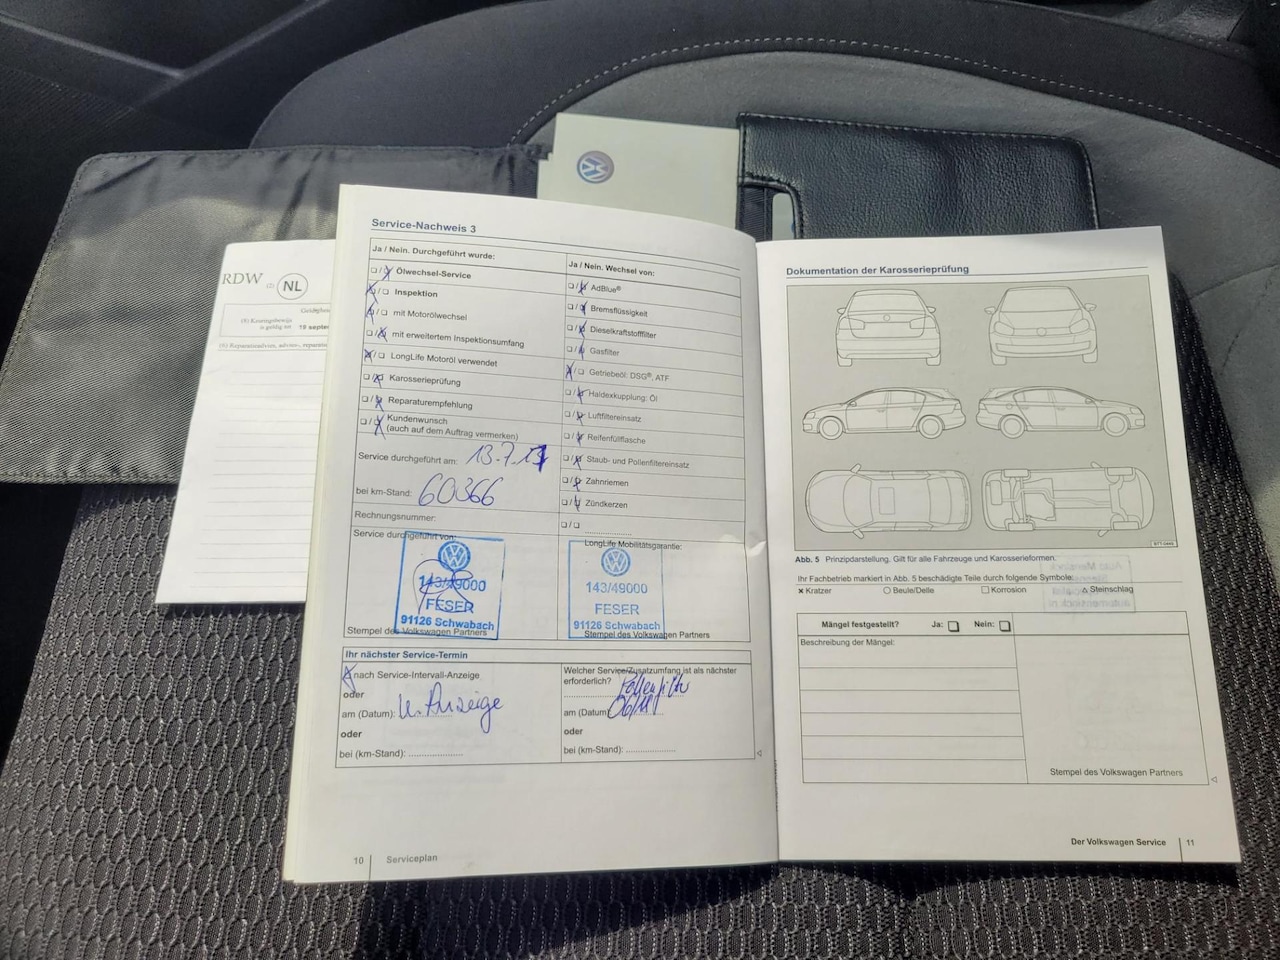 RDW (2) NL
(8) Kentekenbewijs
is geldig tot
19 septe
(6) Reparatieadvies, advies-, reparatie
Service-Nachweis 3
Ja / Nein. Durchgeführt wurde:
❑/❑ Ölwechsel-Service
❑/❑ Inspektion
❑/❑ mit Motorölwechsel
❑/❑ mit erweitertem Inspektionsumfang
❑/❑ LongLife Motoröl verwendet
❑/❑ Karosserieprüfung
❑/❑ Reparaturempfehlung
❑/❑ Kundenwunsch
(auch auf dem Auftrag vermerken)
Service durchgeführt am: 13.7.17
bei km-Stand: 60366
Rechnungsnummer:
Service durchgeführt von:
143/49000
FESER
91126 Schwabach
Stempel des Volkswagen Partners
Ja / Nein. Wechsel von:
❑/❑ AdBlue®
❑/❑ Bremsflüssigkeit
❑/❑ Dieselkraftstofffilter
❑/❑ Gasfilter
❑/❑ Getriebeöl: DSG®, ATF
❑/❑ Haldexkupplung: Öl
❑/❑ Luftfiltereinsatz
❑/❑ Reifenfüllflasche
❑/❑ Staub- und Pollenfiltereinsatz
❑/❑ Zahnriemen
❑/❑ Zündkerzen
❑/❑ ....................
LongLife Mobilitätsgarantie:
143/49000
FESER
91126 Schwabach
Stempel des Volkswagen Partners
Ihr nächster Service-Termin
❑ nach Service-Intervall-Anzeige
oder
am (Datum): n. Anzeige
oder
bei (km-Stand): ....................
Welcher Service/Zusatzumfang ist als nächster
erforderlich?
Pollenfilter
am (Datum): 06/18
oder
bei (km-Stand): ....................
10 Serviceplan
Dokumentation der Karosserieprüfung
Abb. 5 Prinzipdarstellung. Gilt für alle Fahrzeuge und Karosserieformen.
Ihr Fachbetrieb markiert in Abb. 5 beschädigte Teile durch folgende Symbole:
× Kratzer ○ Beule/Delle □ Korrosion △ Steinschlag
Mängel festgestellt? Ja: ❑ Nein: ❑
Beschreibung der Mängel:
Stempel des Volkswagen Partners
Der Volkswagen Service 11